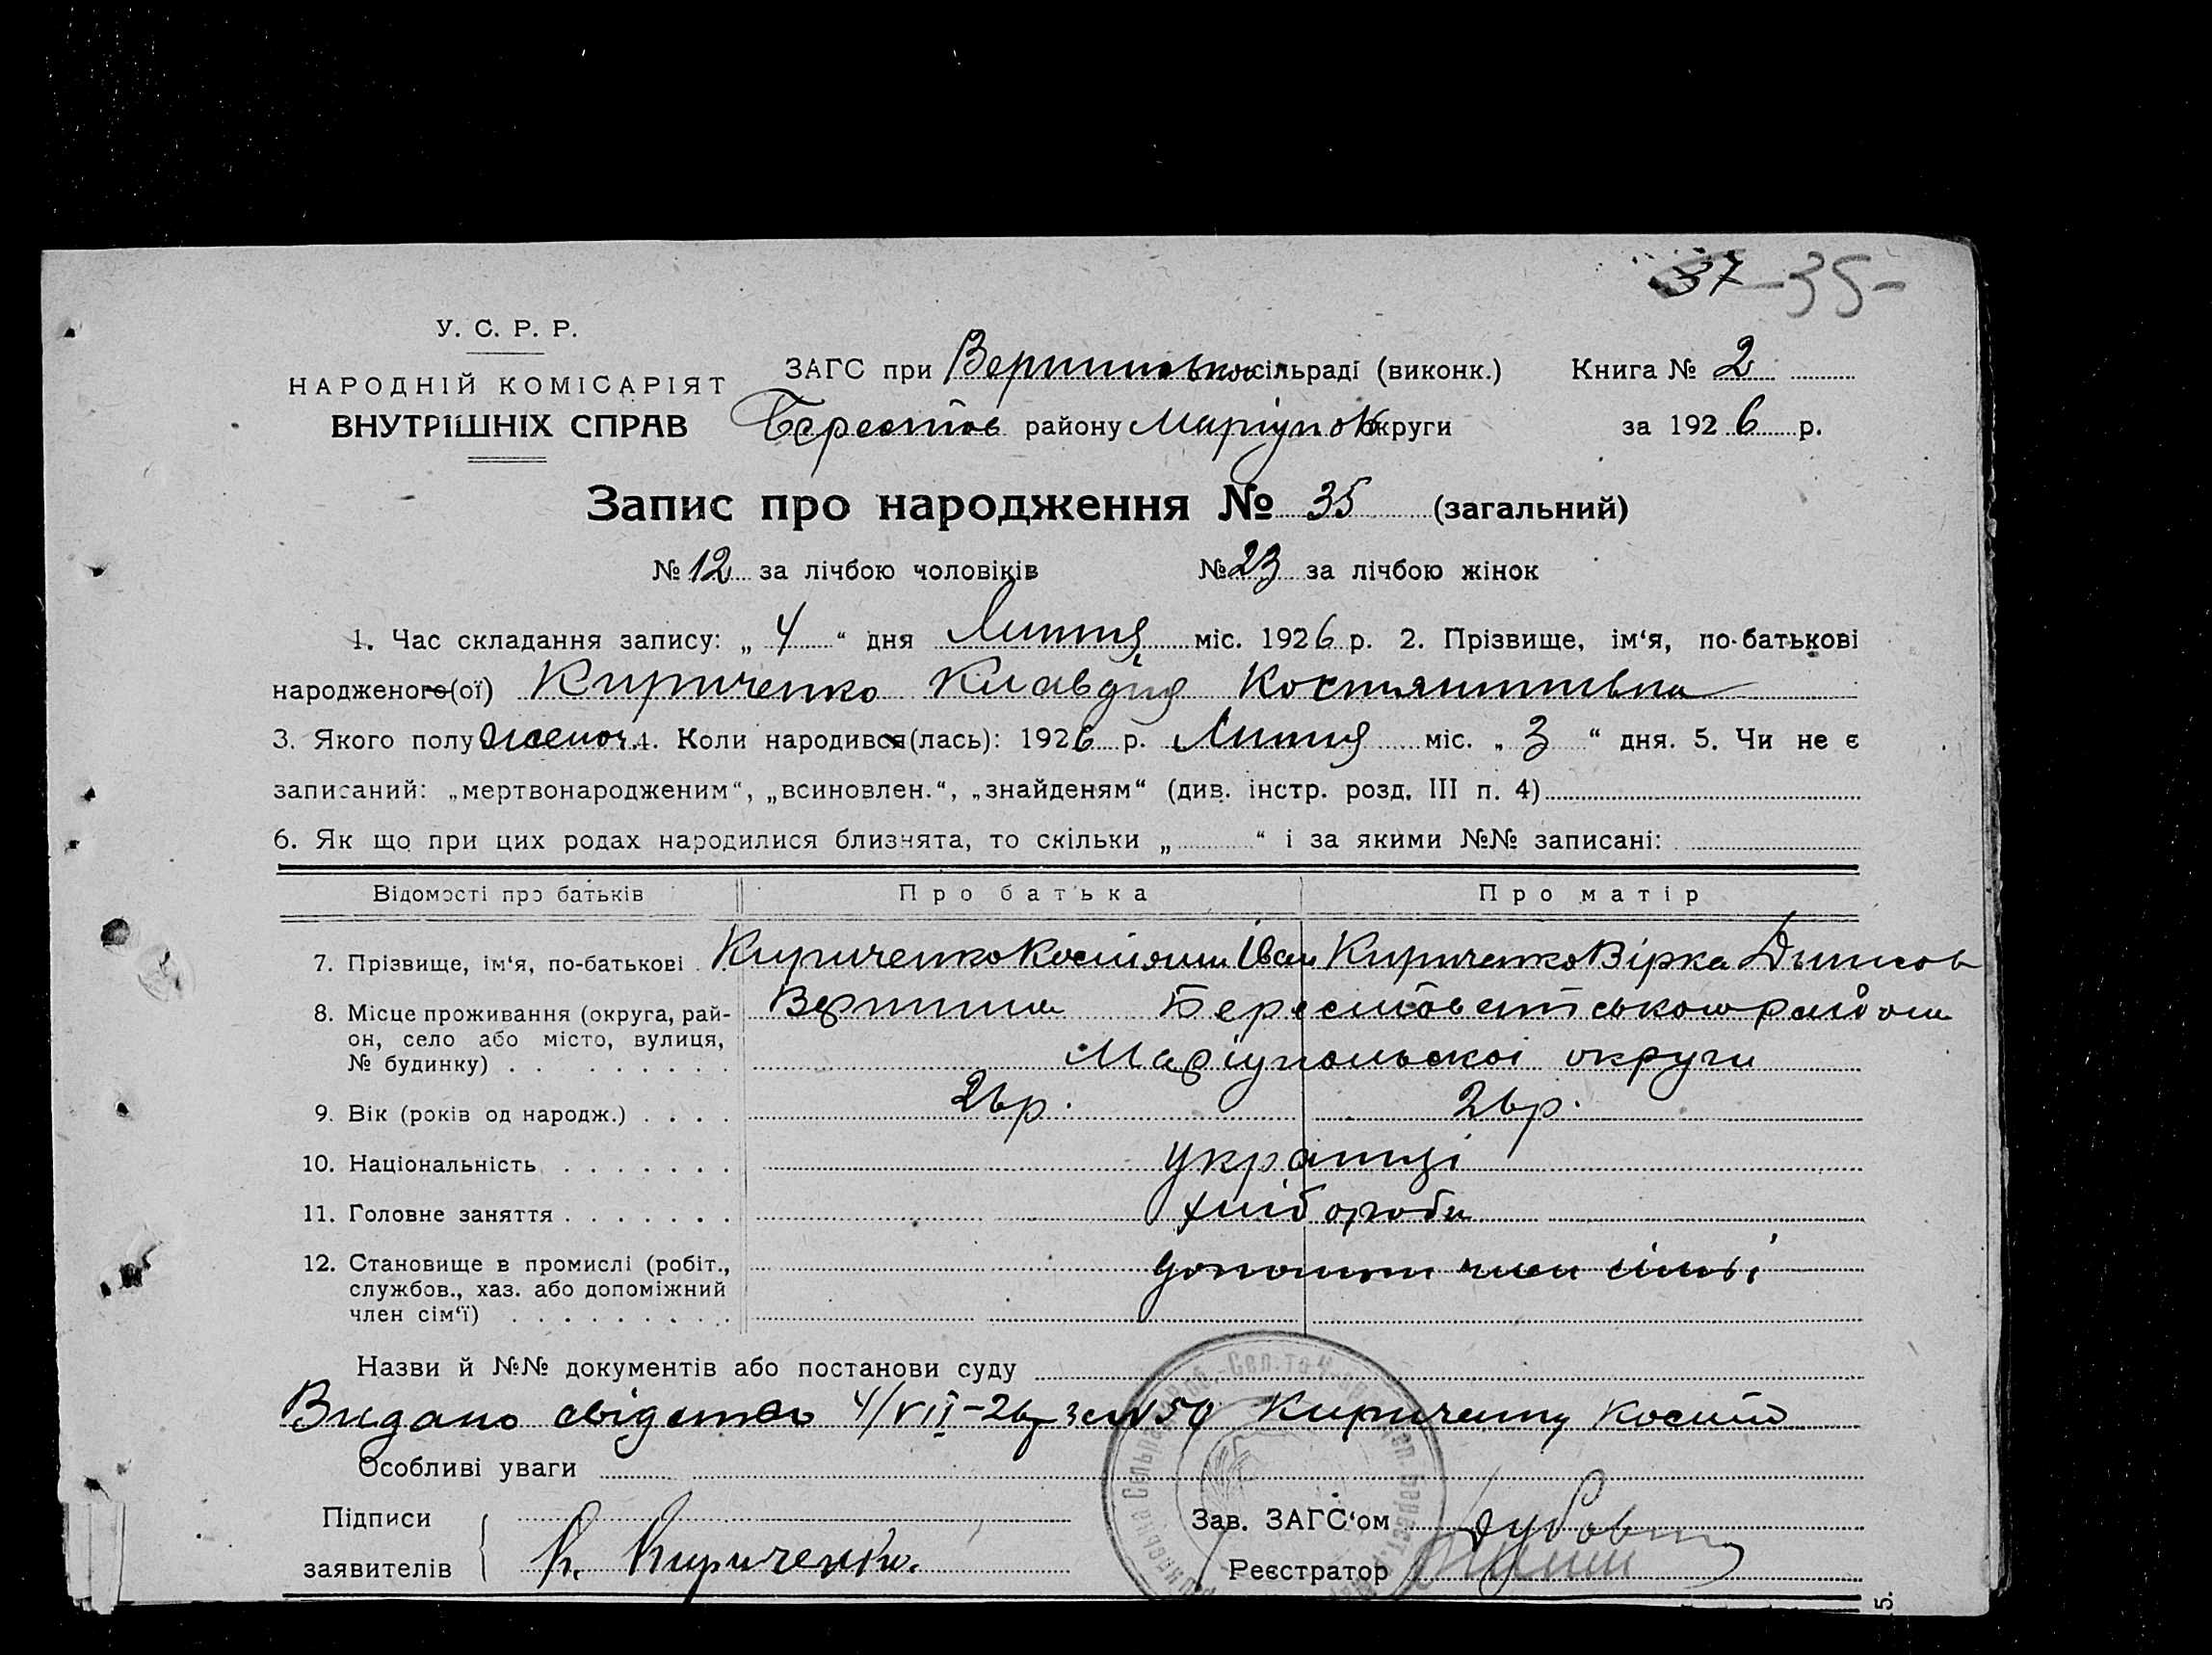 37 -35-
У. С. Р. Р.
НАРОДНІЙ КОМІСАРІЯТ
ВНУТРІШНІХ СПРАВ
ЗАГС при сільраді (виконк.) Книга № 2
Берестов району Маріупок округи за 1926 р.
Запис про народження № 35 (загальний)
№ 12 за лічбою чоловіків № 23 за лічбою жінок
1. Час складання запису: „ 4 “ дня Липня міс. 1926 р. 2. Прізвище, ім‘я, по-батькові
народженого(ої) Кириченко Клавдія Костянтинівна
3. Якого полу жіноч. 4. Коли народився(лась): 1926 р. Липня міс. „ 3 “ дня. 5. Чи не є
записаний: „мертвонародженим“, „всиновлен.“, „знайденям“ (див. інстр. розд. III п. 4)
6. Як що при цих родах народилися близнята, то скільки „ “ і за якими №№ записані:
Відомості про батьків Про батька Про матір
7. Прізвище, ім‘я, по-батькові Кириченко Костянти Іван Кириченко Вірка Денисов
8. Місце проживання (округа, рай-
он, село або місто, вулиця,
№ будинку) Вершина Берестовенського району
Маріупольскої округи
9. Вік (років од народж.) 26 р. 26 р.
10. Національність українці
11. Головне заняття хлібороби
12. Становище в промислі (робіт.,
службов., хаз. або допоміжний
член сім‘ї) член сімьі
Назви й №№ документів або постанови суду
Видано свідотво 4/VII-26р за № 50 Кириченку Костю
Особливі уваги
Підписи
заявителів К. Кириченко.
Зав. ЗАГС‘ом
Реєстратор
5.